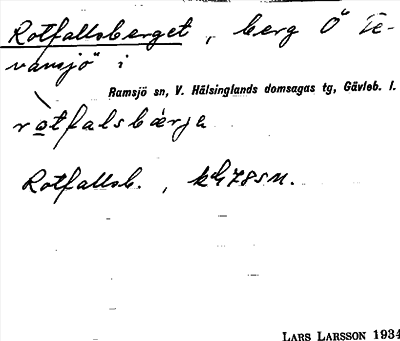 Rotfallsberget, berg Ö Te-
vansjö i
Ramsjö sn, V. Hälsinglands domsagas tg, Gävleb. l.
ròtfalsbærja
Rotfallsb., 78SM.
LARS LARSSON 1934